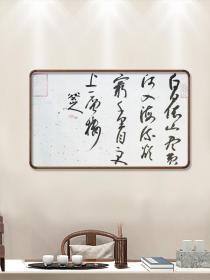 白日依山盡黃
河入海流欲
窮千里目更
上一層樓
八大山人